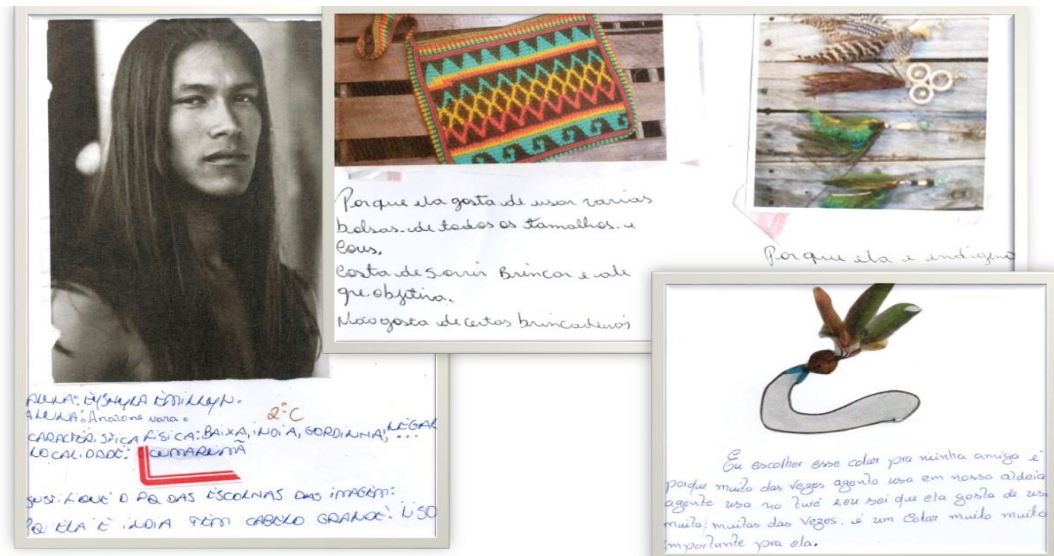 ALUNA: EMILLYN.
ALUNA:
2º C
CARACTERÍSTICA FÍSICA: BAIXA, INDIA, GORDINHA, LEGAL ...
LOCALIDADE: CUMARUMÃ
JUSTIFIQUE O PQ DAS ESCOLHAS DAS IMAGEM:
PQ ELA E INDIA TEM CABELO GRANDE: LISO
Porque ela gosta de usar varias
bolsas de todos os tamalhos e
Cores,
Gosta de Sorrir Brincar e ale
que objetiva.
Não gosta de certas brincadeiras
Porque ela e indigena
Eu escolher esse colar pra minha amiga é
porque muita das vezes agente usa em nossa aldeia
agente usa no turé eeu sei que ela gosta de usa
muito, muitas das vezes. é um Colar muito muito
importante pra ela.